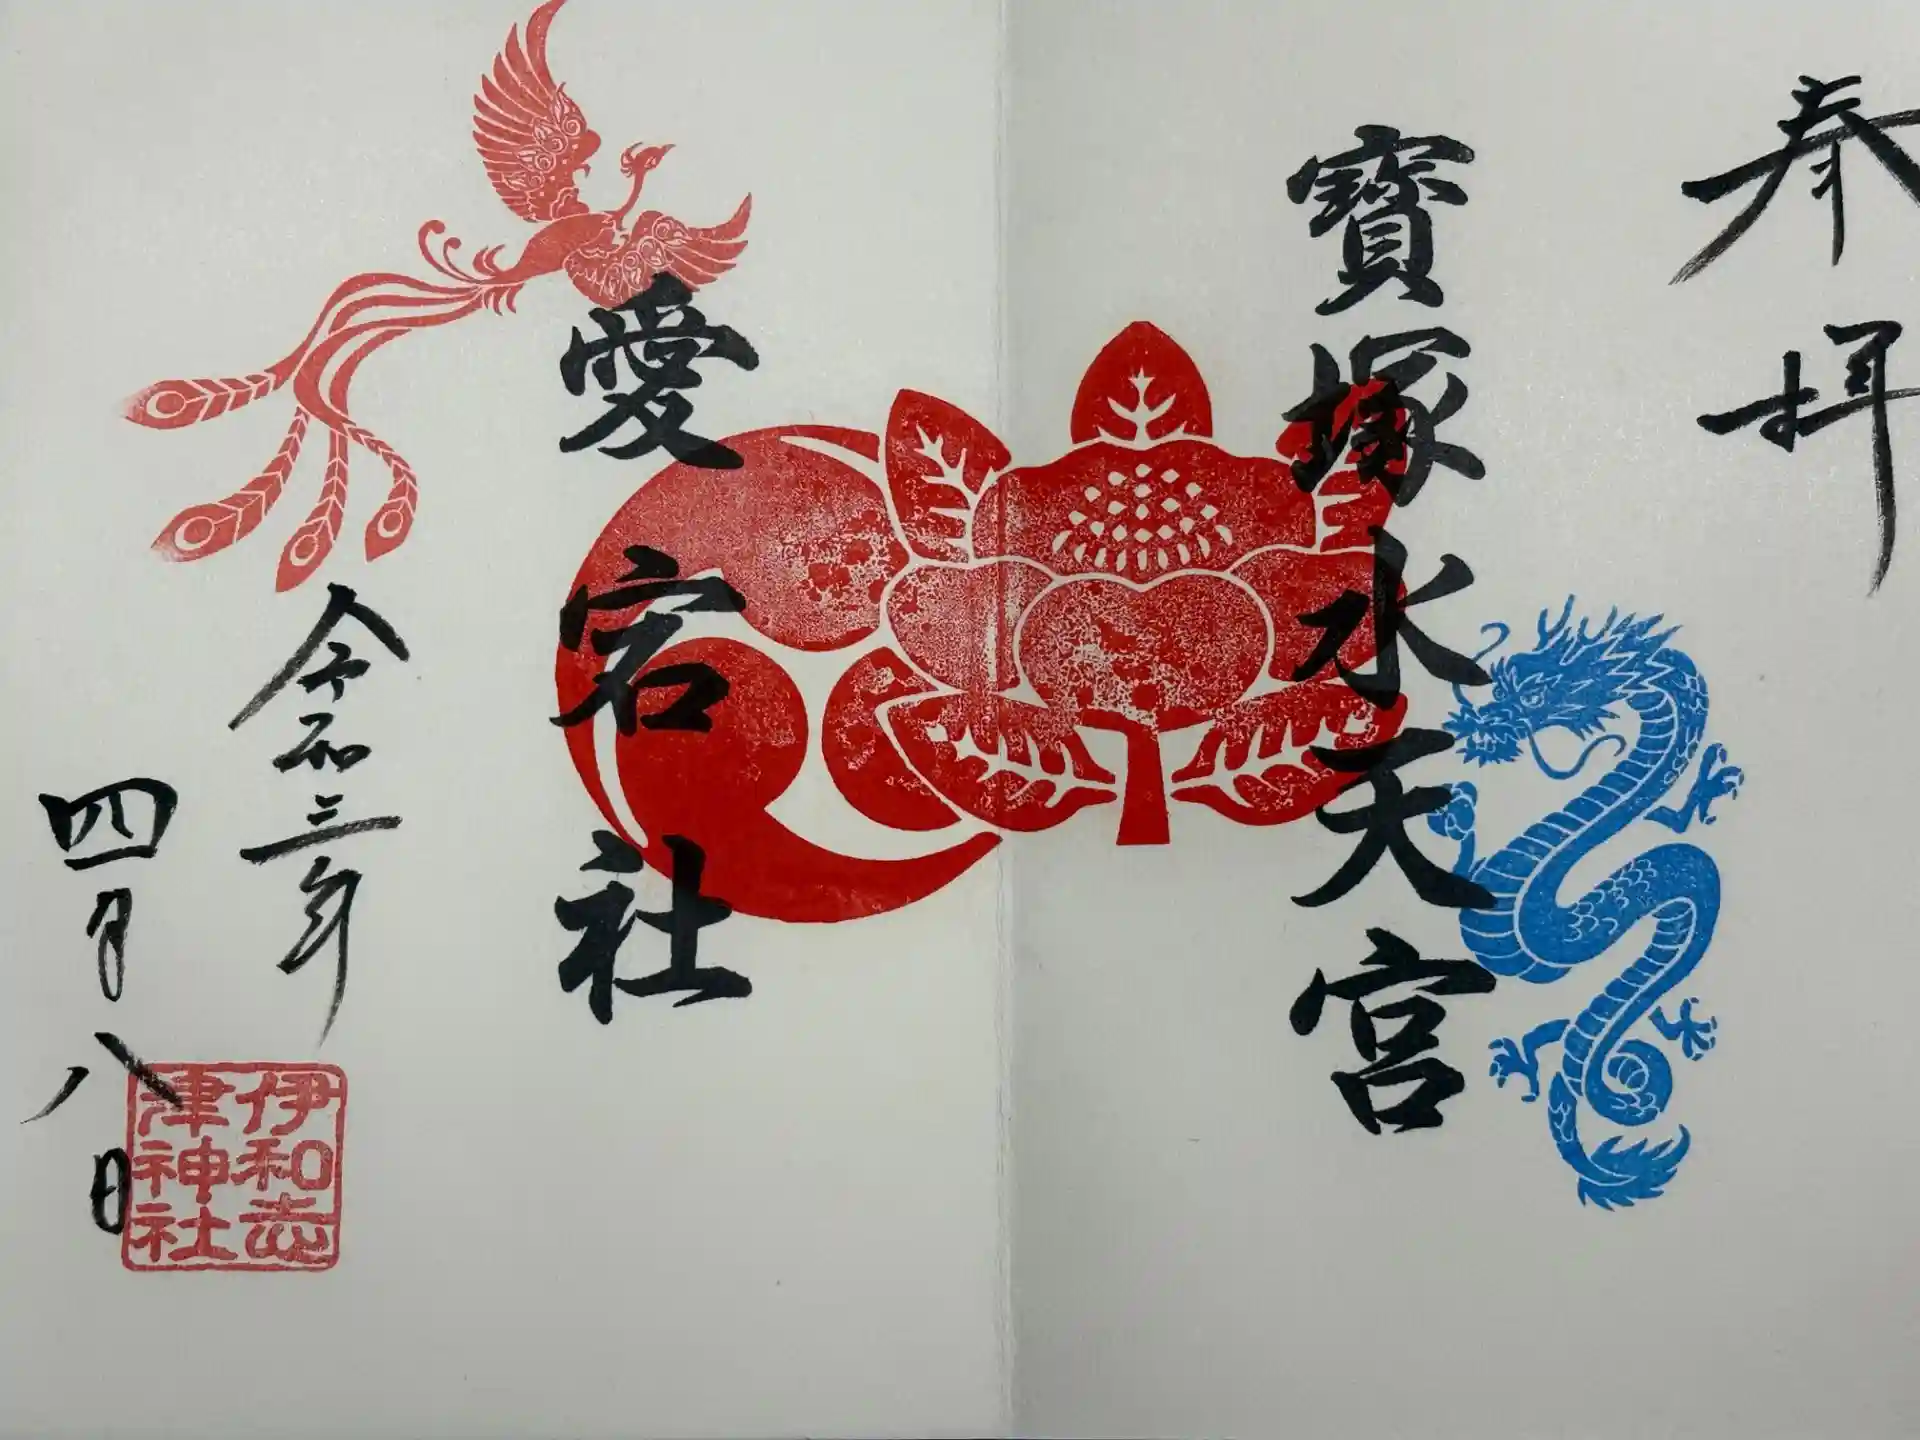 奉拝
寳塚水天宮
愛宕社
令和三年
四月八日
伊和志
津神社